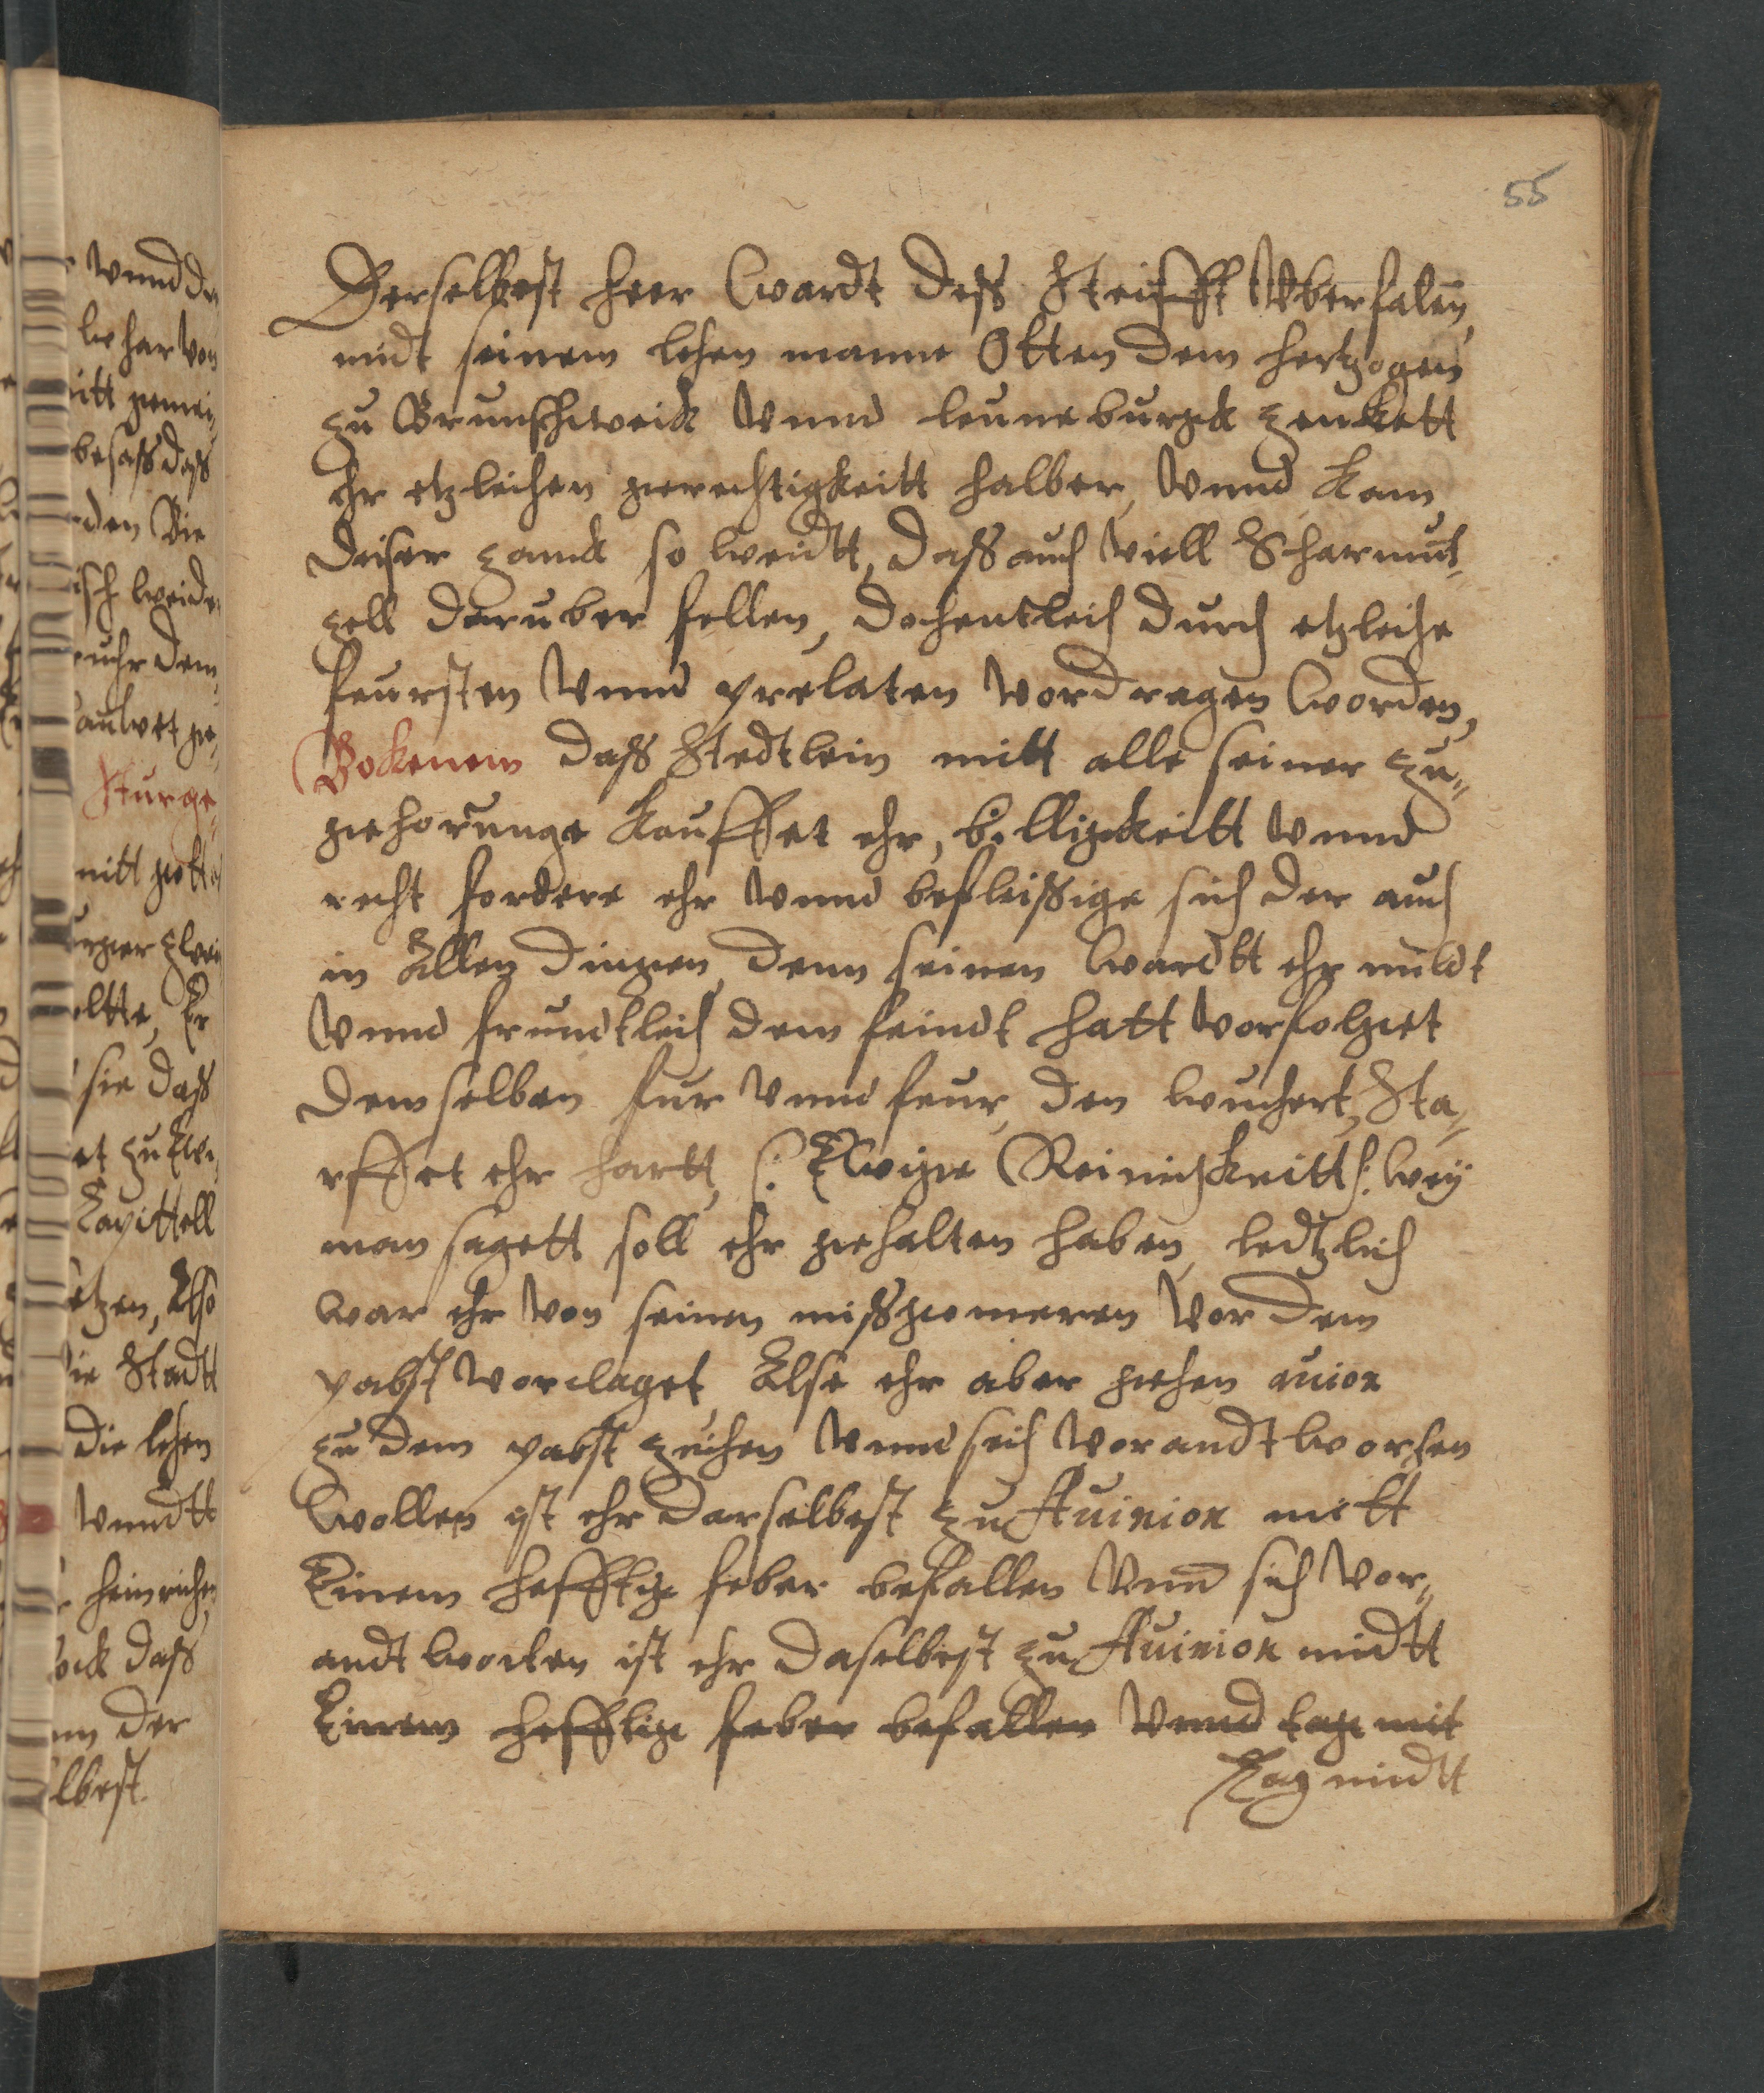 55
Derselbest heer wardt dess Steifft Vberfalen,
midt seinem lehen manne Otten dem hertzogen
zu Brunschweick Vnnd leuneburgck zenkett
ehr etzleichen gerechtigkeitt halber, Vnnd kam
deiser zanck so weidtt, dass auch Viell Scharmut,
zell daruber fellen, dochentleich durch etzleiche
feursten Vnnd prelaten Vordragen worden,
Bokenem dass Stedtlein mitt alle seiner zu,,
gehorunge kauffet ehr, billigkeitt Vnnd
recht fordere ehr Vnnd befleissige sich der auch
in Allen dingen, denn seinen wardtt ehr mildt
Vnnd frundtleich dem feindt hatt Vorfolget
demselben fur Vnnd feur, den wuchert, Sta,,
rffet ehr hartt, /: Ewige Reinichkeitt /: wey
man sagett soll ehr gehalten haben, ledtzlich
war ehr Von seinen missgonneren Vor dem
pabst Vorclaget, Alse ehr aber gehen auion
zu dem pabst zeichen Vnnd seich Vorandtworhen
wollen yst ehr darselbest zu Auinion mitt
Einem hefftige feber befallen Vnnd sich Vor,,
andtworten ist ehr daselbest zu Auinion midtt
Einem hefftige feber befallen Vnnd tage mit
Tag midtt
Vnnd de
whar Von
itt gemei,
besass dass
den Die
isch weide
uhr dem
auwet ge,
Sturge,
mitt gott
urger zwei
oltte, Er
sie dass
et zu Ewi,
Capittell
etzen, Also
ie Stadtt
die lehen
Vnndtt
heinrichen
ock dass
nn der
lbest.